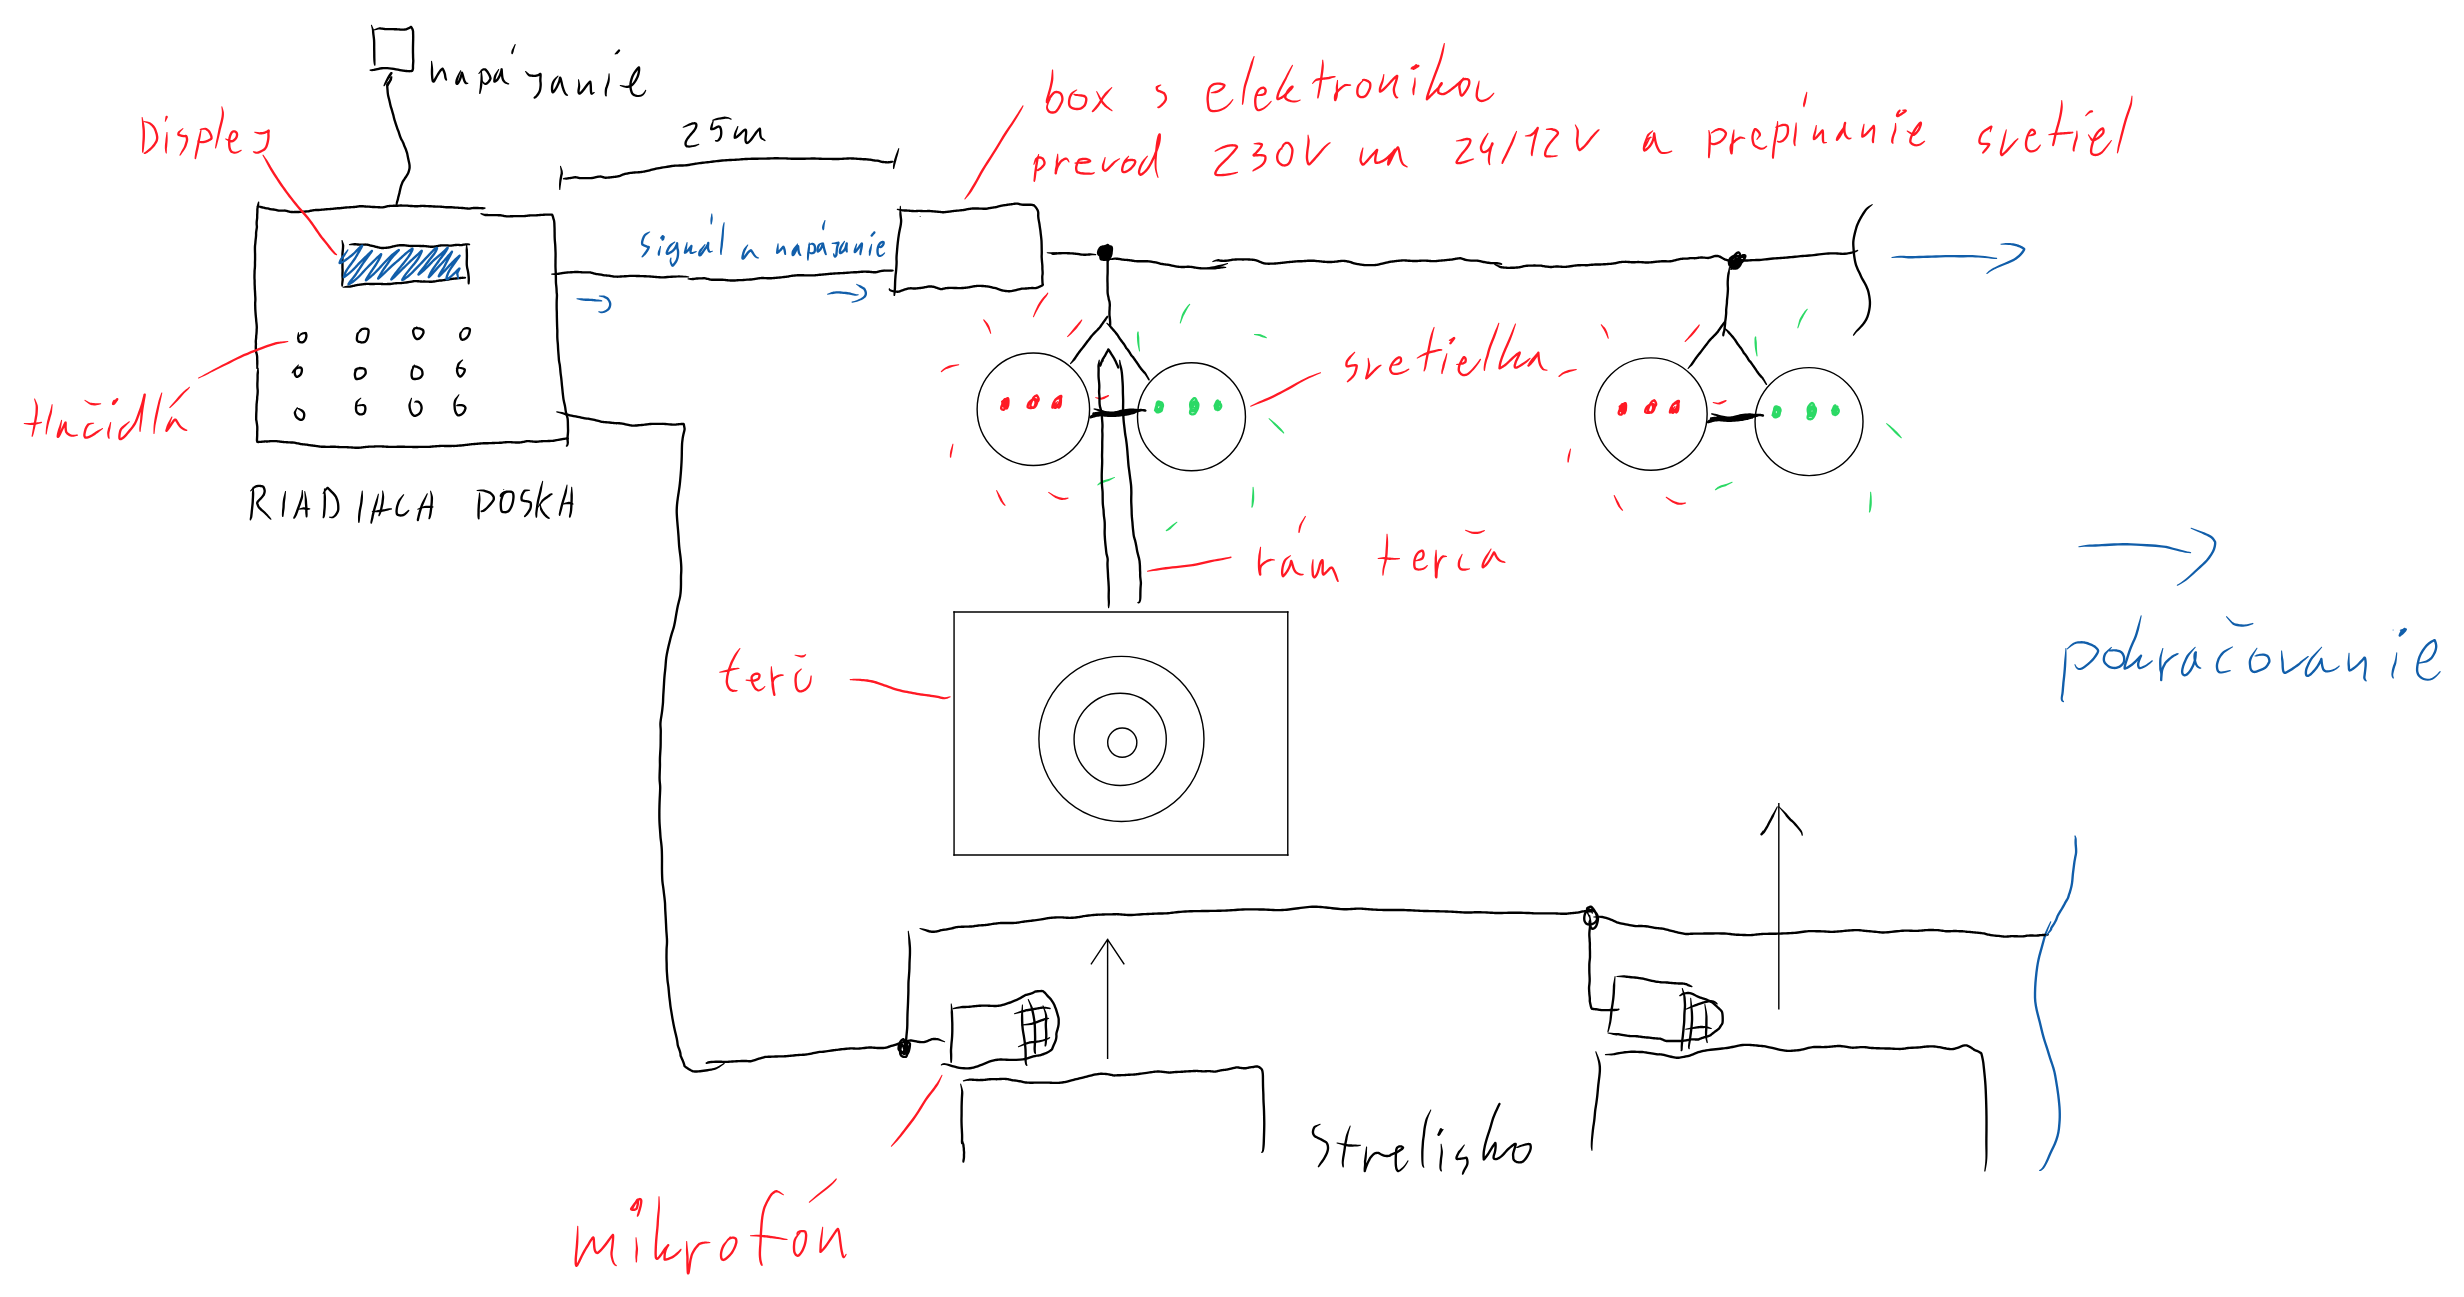 napájanie
Displej
25m
box s elektronikou
prevod 230V na 24/12V a prepínanie svetiel
signál a napájanie
svetielka
tlačidlá
RIADIACA DOSKA
rám terča
terč
pokračovanie
Strelisko
mikrofón